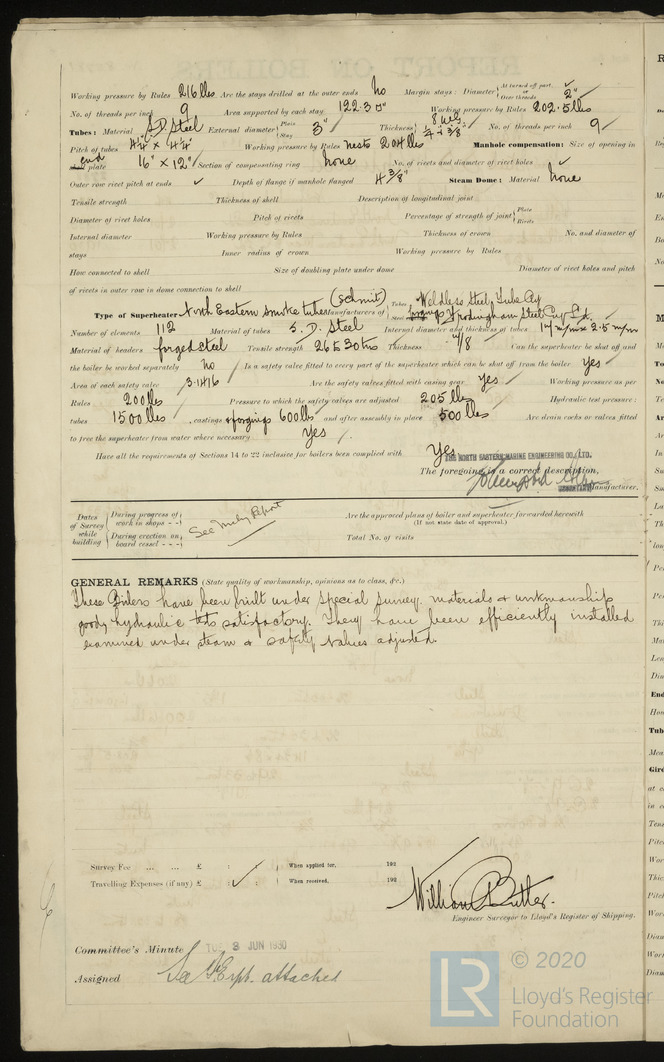 Working pressure by Rules 216 lbs Are the stays drilled at the outer ends No Margin stays: Diameter { At turned off part, or Over threads 2"
No. of threads per inch 9 Area supported by each stay 122.3 □" Working pressure by Rules 202.5 lbs
Tubes: Material S.D. Steel External diameter { Plain Stay 3" Thickness { 8 WG No. of threads per inch 9
Pitch of tubes 4¼" x 4¼" Working pressure by Rules 204 lbs Manhole compensation: Size of opening in
end plate 16" x 12" Section of compensating ring None No. of rivets and diameter of rivet holes
Outer row rivet pitch at ends Depth of flange if manhole flanged 4 3/8" Steam Dome: Material None
Tensile strength Thickness of shell Description of longitudinal joint
Diameter of rivet holes Pitch of rivets Percentage of strength of joint { Plate Rivets
Internal diameter Working pressure by Rules Thickness of crown No. and diameter of
stays Inner radius of crown Working pressure by Rules
How connected to shell Size of doubling plate under dome Diameter of rivet holes and pitch
of rivets in outer row in dome connection to shell
Type of Superheater North Eastern smoke tube (Schmit) Manufacturers of { Tubes Weldless Steel Tube Coy
Steel forgings Frodingham Steel Coy Ltd.
Number of elements 112 Material of tubes S.D. Steel Internal diameter and thickness of tubes 17 m/m x 2.5 m/m
Material of headers forged steel Tensile strength 26 to 30 tons Thickness 7/8 Can the superheater be shut off and
the boiler be worked separately No Is a safety valve fitted to every part of the superheater which can be shut off from the boiler Yes
Area of each safety valve 3.1416 Are the safety valves fitted with easing gear Yes Working pressure as per
Rules 200 lbs Pressure to which the safety valves are adjusted 205 lbs Hydraulic test pressure:
tubes 1500 lbs castings & forgings 600 lbs and after assembly in place 500 lbs Are drain cocks or valves fitted
to free the superheater from water where necessary Yes
Have all the requirements of Sections 14 to 22 inclusive for boilers been complied with Yes
THE NORTH EASTERN MARINE ENGINEERING CO., LTD.
The foregoing is a correct description,
SECRETARY Manufacturer.
Dates of Survey while building { During progress of work in shops - - } See Machy Report Are the approved plans of boiler and superheater forwarded herewith
(If not state date of approval.)
{ During erection on board vessel - - - } Total No. of visits
GENERAL REMARKS (State quality of workmanship, opinions as to class, &c.)
These Boilers have been built under special survey. materials & workmanship
good, hydraulic tests satisfactory. They have been efficiently installed
examined under steam & safety valves adjusted.
Survey Fee ... ... £ : : } When applied for, 192
Travelling Expenses (if any) £ : : } When received, 192
William Butler.
Engineer Surveyor to Lloyd's Register of Shipping.
Committee's Minute TUE 3 JUN 1930
Assigned See F.E. rpt. attached
LR
© 2020
Lloyd's Register
Foundation